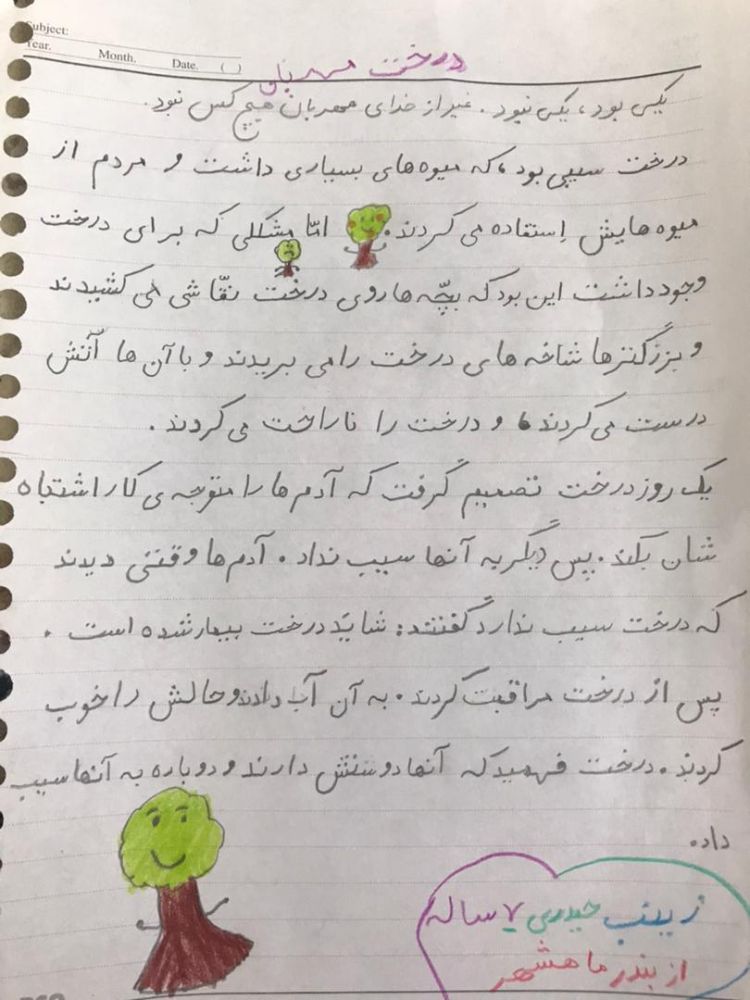 Subject:
Year. Month. Date. ( )
درخت مهربان
یکی بود، یکی نبود. غیر از خدای مهربان هیچ کس نبود.
درخت سیبی بود، که میوه های بسیاری داشت و مردم از
میوه هایش اِستفاده می کردند. امّا مشکلی که برای درخت
وجود داشت این بود که بچّه ها روی درخت نقّاشی می کشیدند
و بزرگترها شاخه های درخت را می بریدند و با آن ها آتش
درست می کردند، و درخت را ناراحت می کردند.
یک روز درخت تصمیم گرفت که آدم ها را متوجه ی کار اشتباه
شان بکند. پس دیگر به آنها سیب نداد. آدم ها وقتی دیدند
که درخت سیب ندارد گفتند: شاید درخت بیمار شده است.
پس از درخت مراقبت کردند. به آن آب دادند و حالش را خوب
کردند. درخت فهمید که آنها دوستش دارند و دوباره به آنها سیب
داد.
زینب حیدری ۷ ساله
از بندر ماهشهر